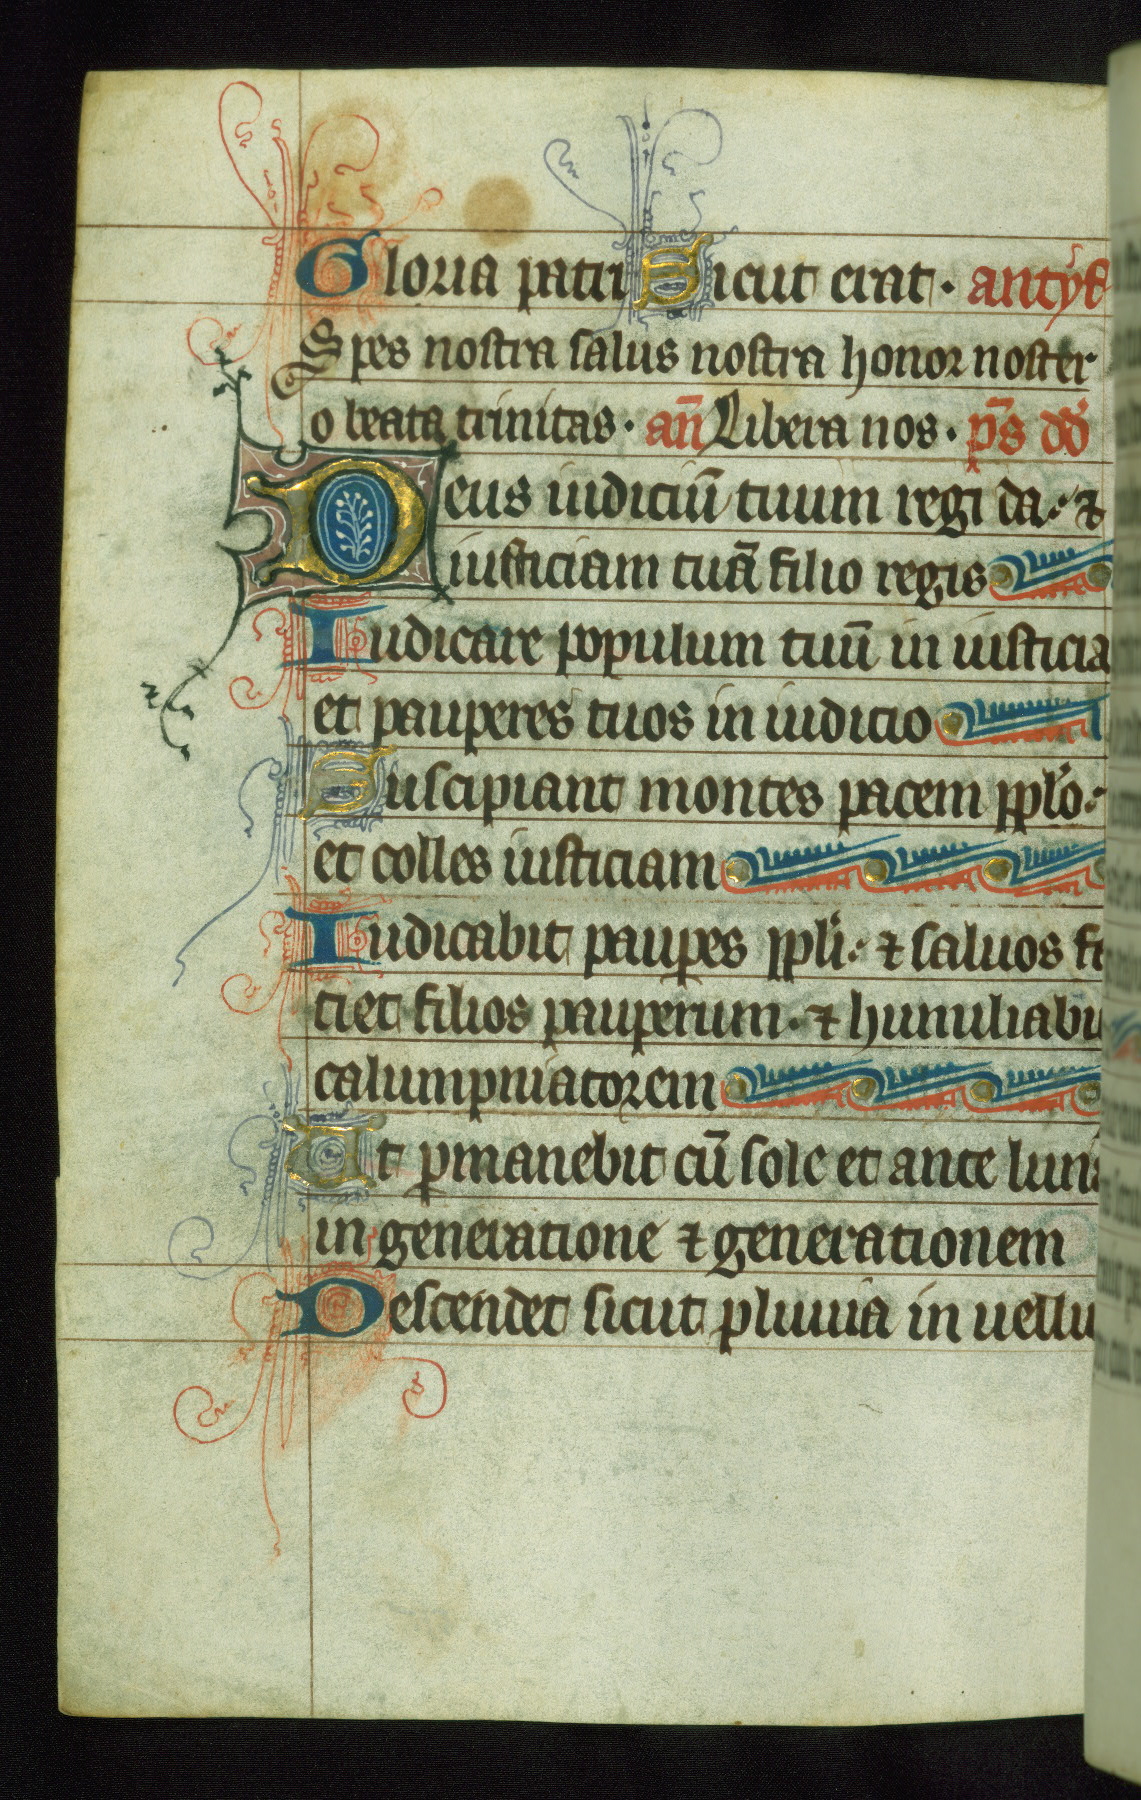 Gloria patri Sicut erat · antyẽ
Spes nostra salus nostra honor noster
o beata trinitas · añ Libera nos · p̃s dd̃
Deus iudiciũ tuum regi da · ⁊
iusticiam tuã filio regis
Iudicare populum tuũ in iusticia
et pauperes tuos in iudicio
Suscipiant montes pacem ppl̃o ·
et colles iusticiam
Iudicabit paupes ppl̃i · ⁊ saluos fa
ciet filios pauperum · ⁊ humiliabit
calumpniatorem
Et ꝑmanebit cũ sole et ante lunã
in generatione ⁊ generationem
Descendet sicut pluuia in uellu